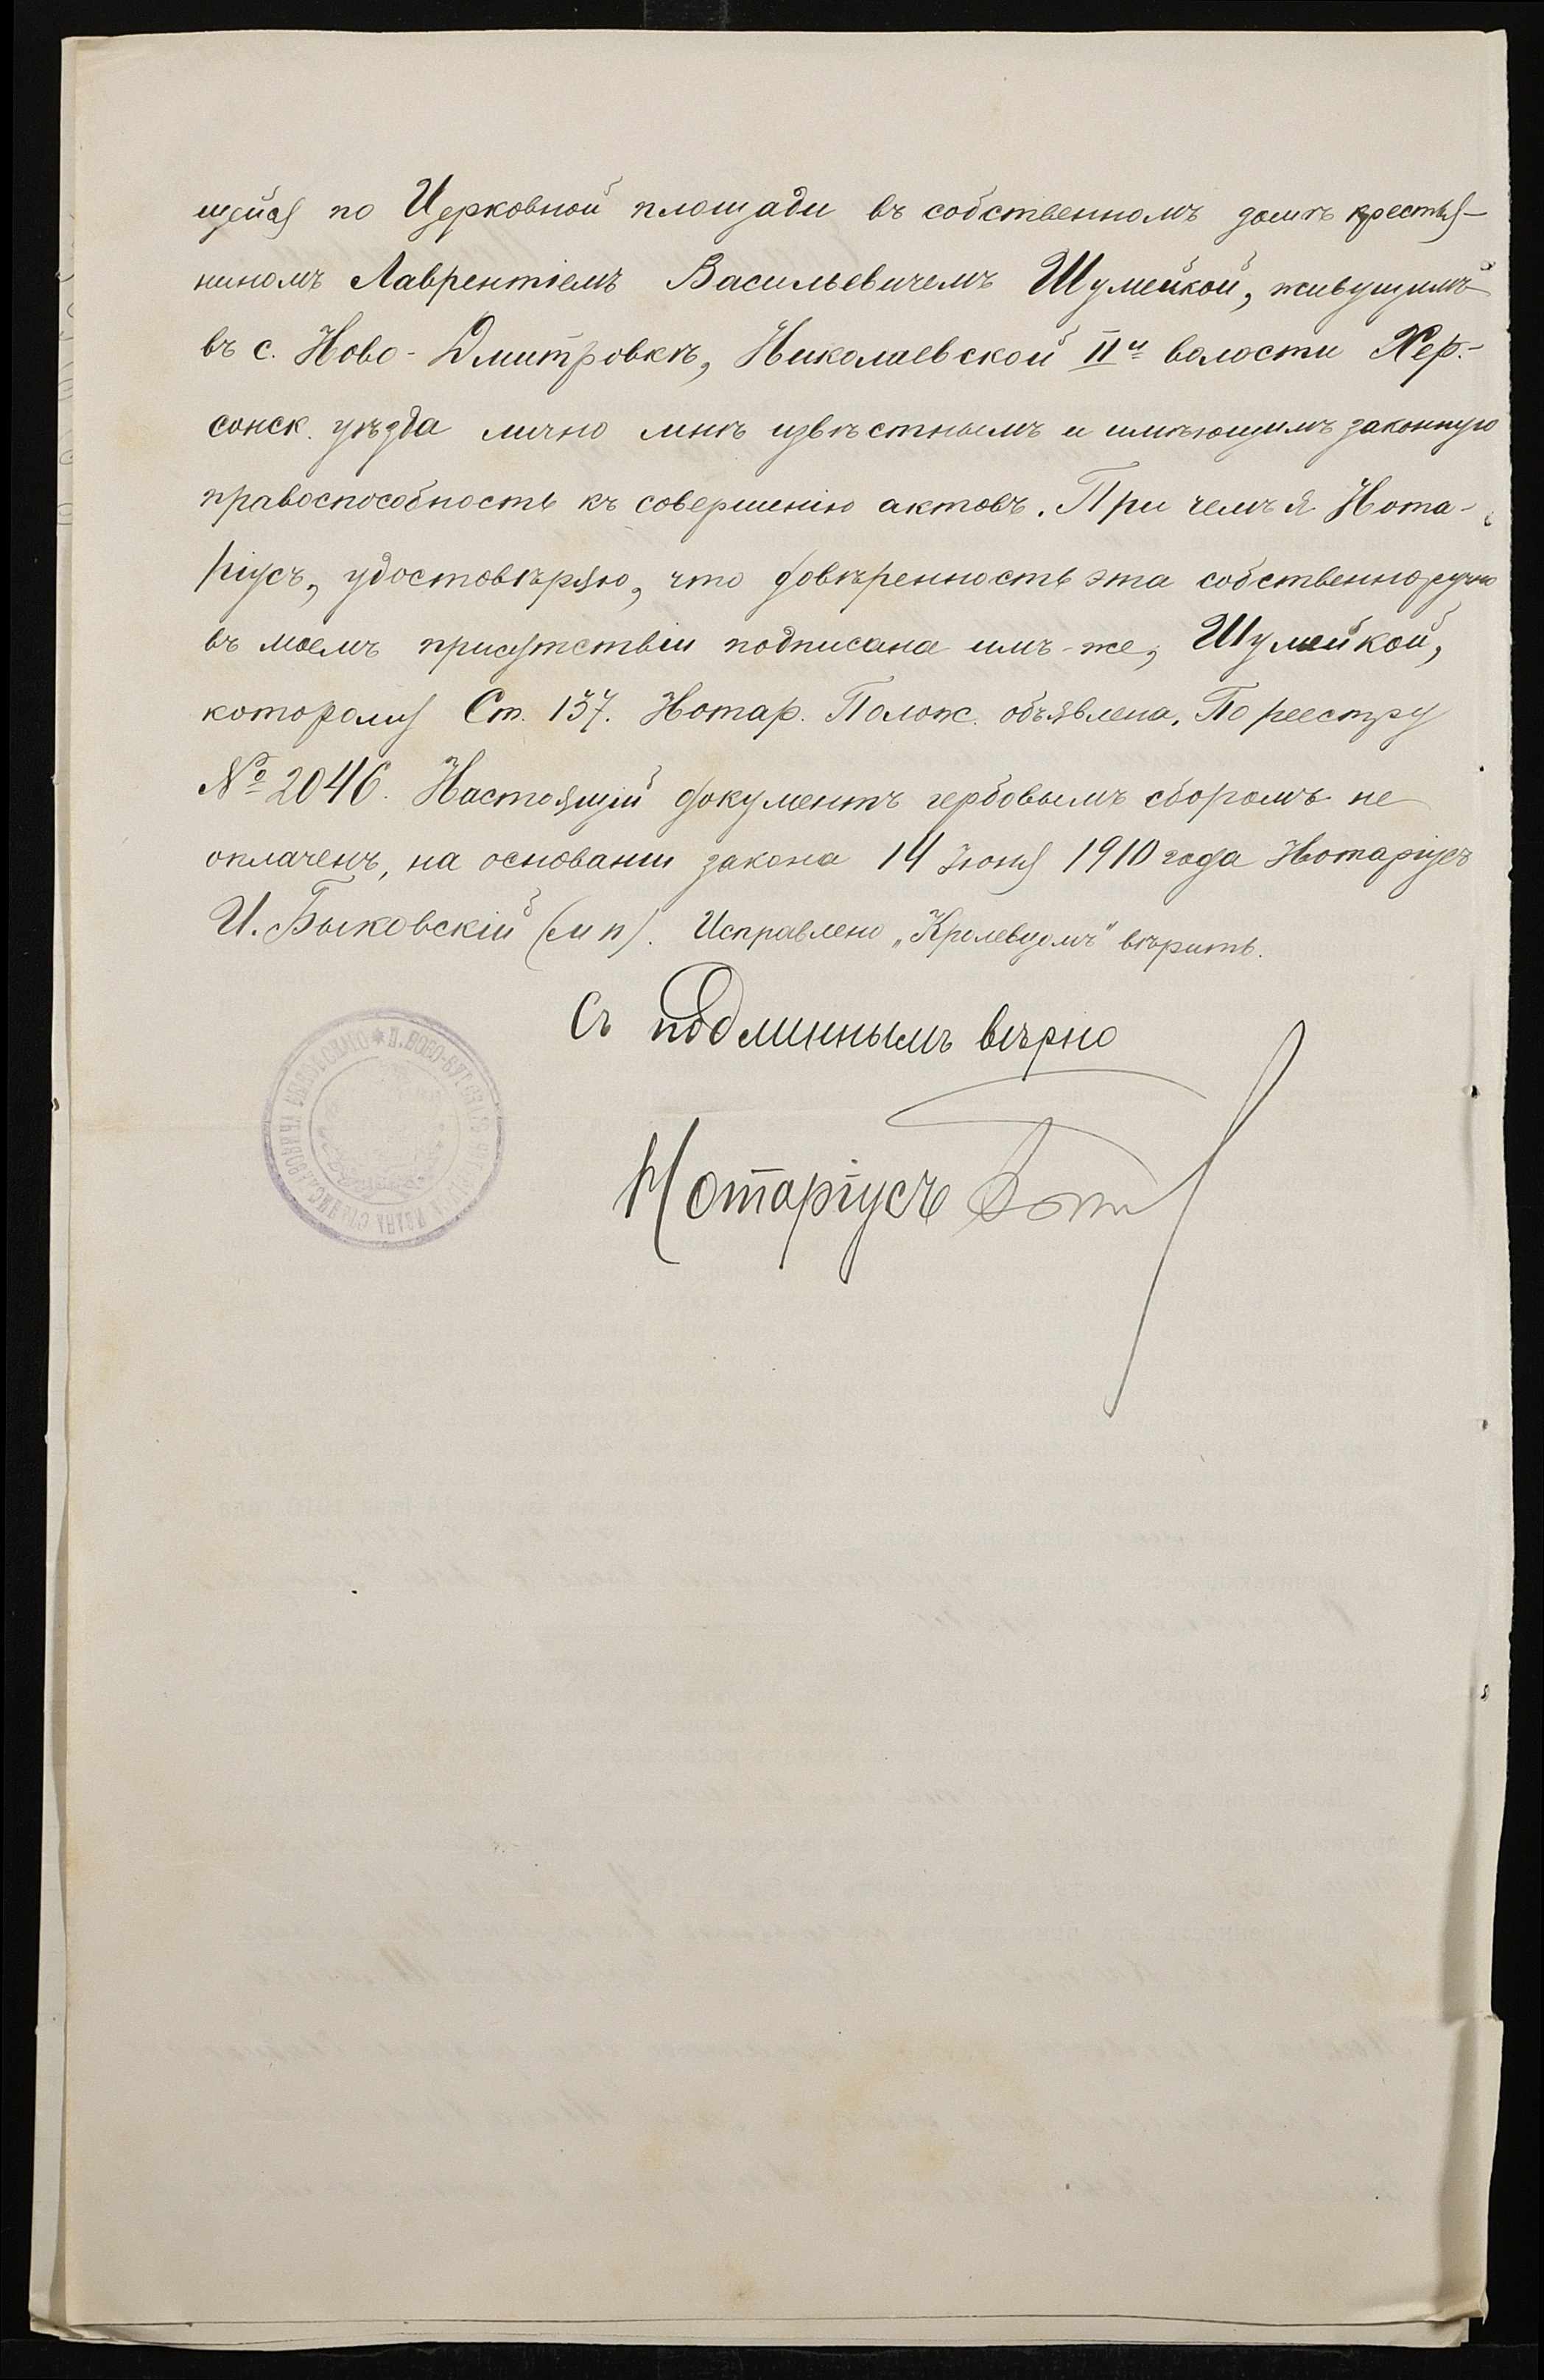 щейся по Церковной площади въ собственномъ домѣ крестья-
ниномъ Лаврентіемъ Васильевичемъ Шумейкой, живущимъ
въ с. Ново-Дмитровкѣ, Николаевской IIй волости Хер-
сонск. уѣзда лично мнѣ извѣстнымъ и имѣющимъ законную
правоспособность къ совершенію актовъ. При чемъ я Нота-
ріусъ, удостовѣряю, что довѣренность эта собственноручно
въ моемъ присутствіи подписана имъ-же, Шумейкой,
которому Ст. 137. Нотар. Полож. объявлена. По реестру
№ 2046. Настоящій документъ гербовымъ сборомъ не
оплаченъ, на основаніи закона 14 Іюня 1910 года Нотаріусъ
И. Быковскій (м п). Исправлено „Кролевцомъ" вѣрить.
Съ подлиннымъ вѣрно
Нотаріусъ